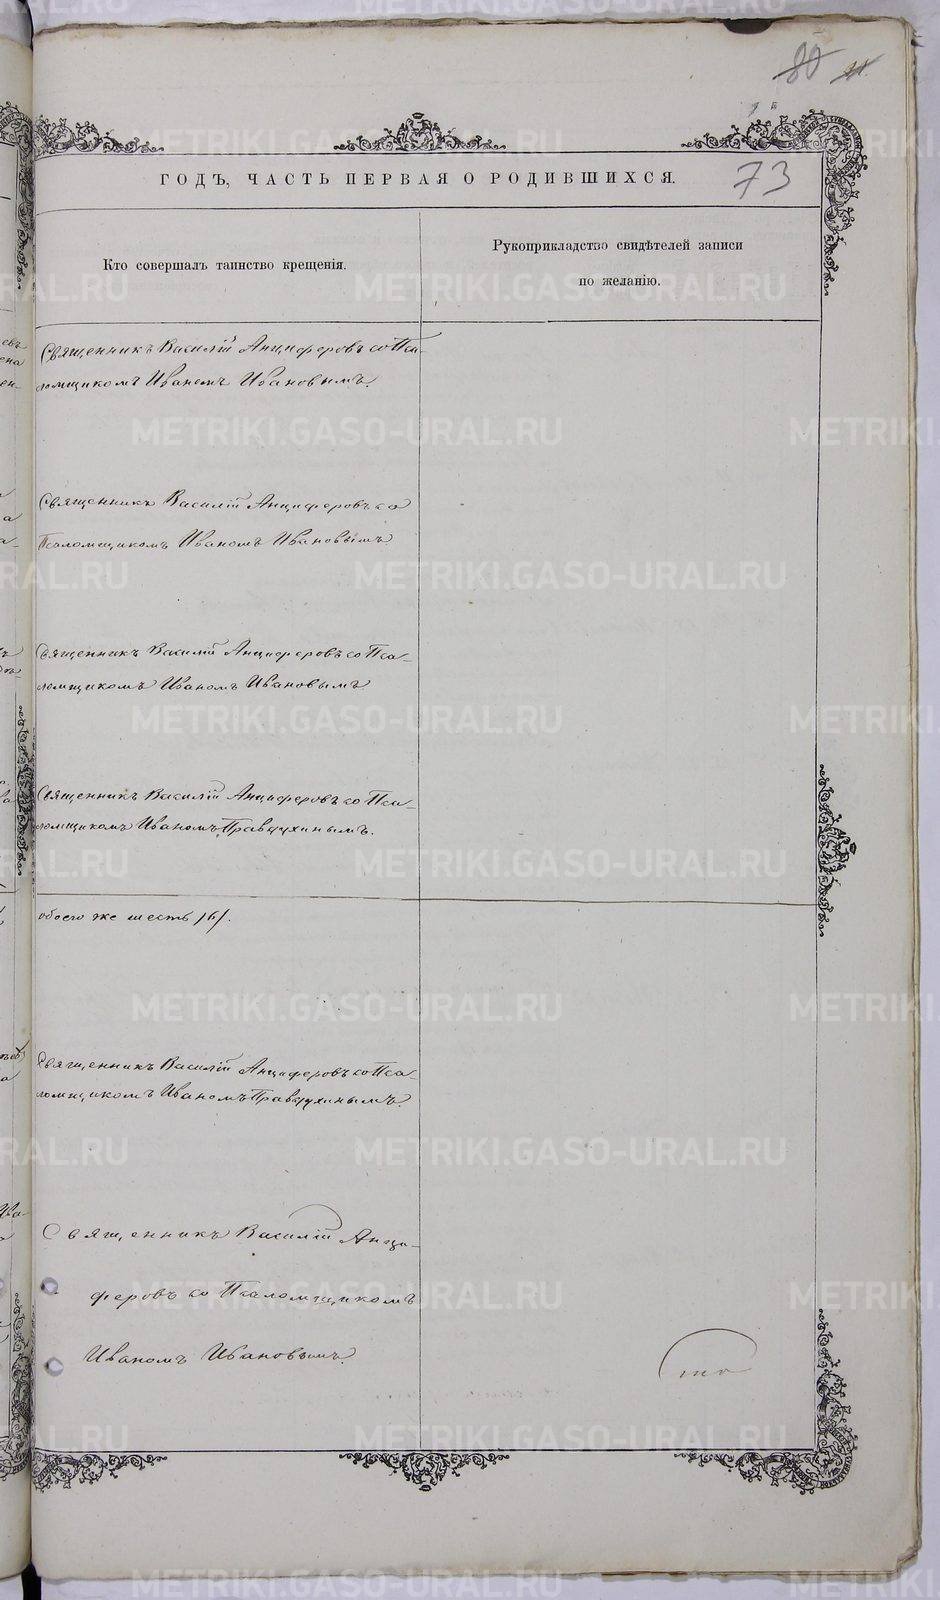 80
73
ГОДЪ, ЧАСТЬ ПЕРВАЯ О РОДИВШИХСЯ.
Кто совершалъ таинство крещенія.
Рукоприкладство свидѣтелей записи
по желанію.
Священникъ Василій Анциферовъ со Пса-
ломщикомъ Иваномъ Ивановымъ.
Священникъ Василій Анциферовъ со
Псаломщикомъ Иваномъ Ивановымъ
Священникъ Василій Анциферовъ со Пса-
ломщикомъ Иваномъ Ивановымъ
Священникъ Василій Анциферовъ со Пса-
ломщикомъ Иваномъ Правдухинымъ.
обоего же шесть /6/.
Священникъ Василій Анциферовъ со Пса-
ломщикомъ Иваномъ Правдухинымъ.
Священникъ Василій Анци-
феровъ со Псаломщикомъ
Иваномъ Ивановымъ.
METRIKI.GASO-URAL.RU